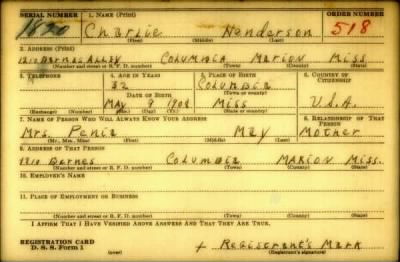 SERIAL NUMBER 1. NAME (Print) ORDER NUMBER
1820 Charlie Henderson 518
(First) (Middle) (Last)
2. ADDRESS (Print)
1210 Barnes Alley Columbia Marion Miss
(Number and street or R. F. D. number) (Town) (County) (State)
3. TELEPHONE 4. AGE IN YEARS 5. PLACE OF BIRTH 6. COUNTRY OF CITIZENSHIP
32 Columbia
DATE OF BIRTH (Town or county)
May 9 1908 Miss U.S.A.
(Exchange) (Number) (Mo.) (Day) (Yr.) (State or country)
7. NAME OF PERSON WHO WILL ALWAYS KNOW YOUR ADDRESS 8. RELATIONSHIP OF THAT PERSON
Mrs. Penia May Mother
(Mr., Mrs., Miss) (First) (Middle) (Last)
9. ADDRESS OF THAT PERSON
1210 Barnes Columbia Marion Miss.
(Number and street or R. F. D. number) (Town) (County) (State)
10. EMPLOYER'S NAME
11. PLACE OF EMPLOYMENT OR BUSINESS
(Number and street or R. F. D. number) (Town) (County) (State)
I AFFIRM THAT I HAVE VERIFIED ABOVE ANSWERS AND THAT THEY ARE TRUE.
REGISTRATION CARD
D. S. S. Form 1 (over) + Registrant's Mark
(Registrant's signature)